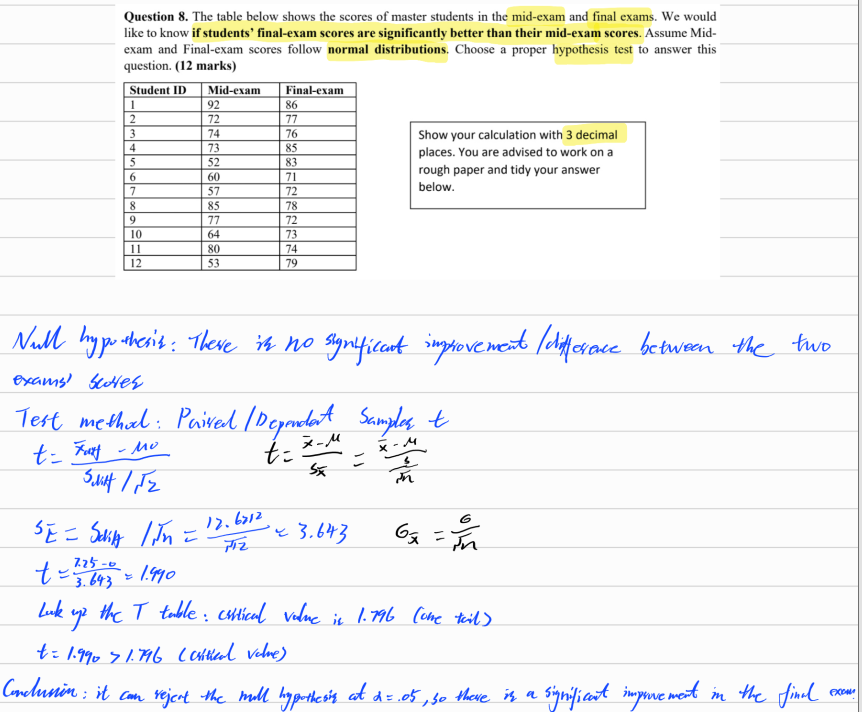 Question 8. The table below shows the scores of master students in the mid-exam and final exams. We would
like to know if students' final-exam scores are significantly better than their mid-exam scores. Assume Mid-
exam and Final-exam scores follow normal distributions. Choose a proper hypothesis test to answer this
question. (12 marks)
Student ID Mid-exam Final-exam
1 92 86
2 72 77
3 74 76
4 73 85
5 52 83
6 60 71
7 57 72
8 85 78
9 77 72
10 64 73
11 80 74
12 53 79
Show your calculation with 3 decimal
places. You are advised to work on a
rough paper and tidy your answer
below.
Null hypothesis: There is no significant improvement/difference between the two
exams' scores
Test method: Paired/Dependent Samples t
t = x̄diff - μ0 / Sdiff/√12 t = x̄-μ / Sx̄ = x̄-μ / s/√n
SE = Sdiff /√n = 12.6212/√12 = 3.643 σx̄ = σ/√n
t = 7.25-0/3.643 = 1.990
Look up the T table: critical value is 1.796 (one tail)
t = 1.990 > 1.796 (critical value)
Conclusion: it can reject the null hypothesis at α=.05, so there is a significant improvement in the final exam